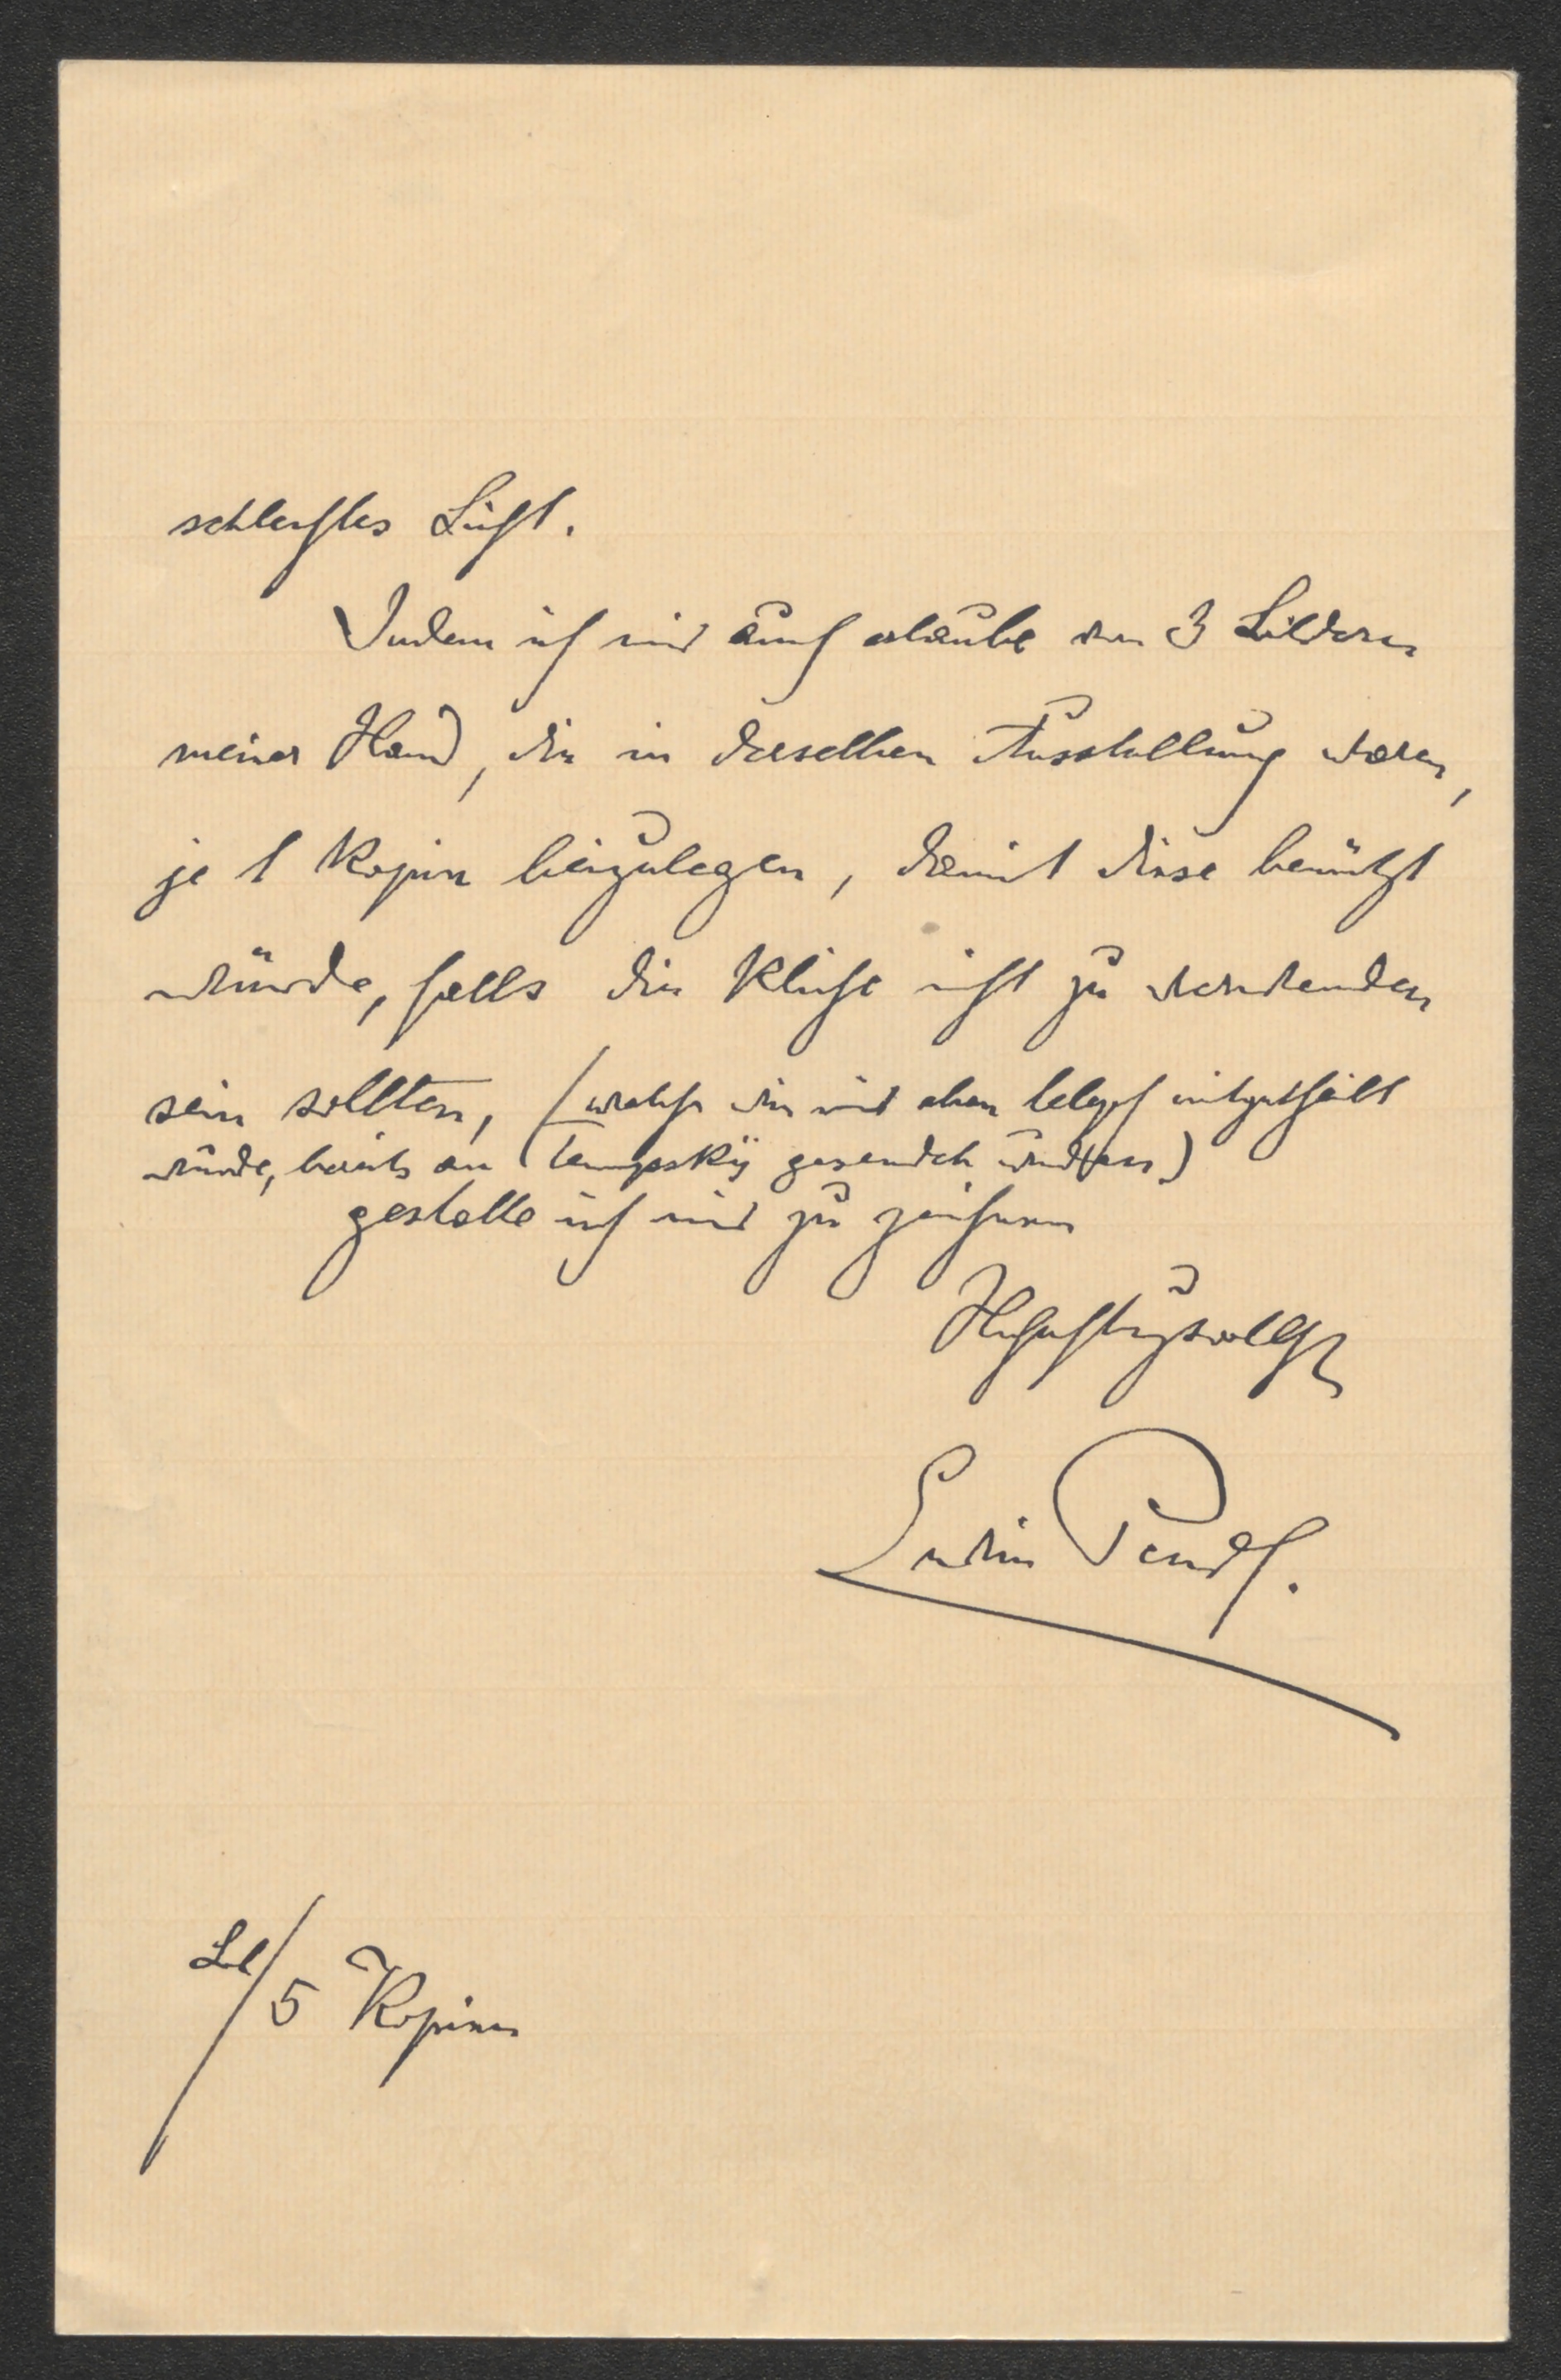 schlechtes Licht.
Indem ich mir auch erlaube von 3 Bildern
meiner Hand, die in derselben Ausstellung waren,
je 1 Kopien beizulegen, damit diese benützt
würde, falls die Klische nicht zu verwenden
sein sollten, (welche wie mir eben telegf mitgetheilt
wurde, bereits an Tempsky gesendet wurden)
gestatte ich mir zu zeichnen
Hochachtungsvollst
Erwin Pendl.
Bl/5 Kopien